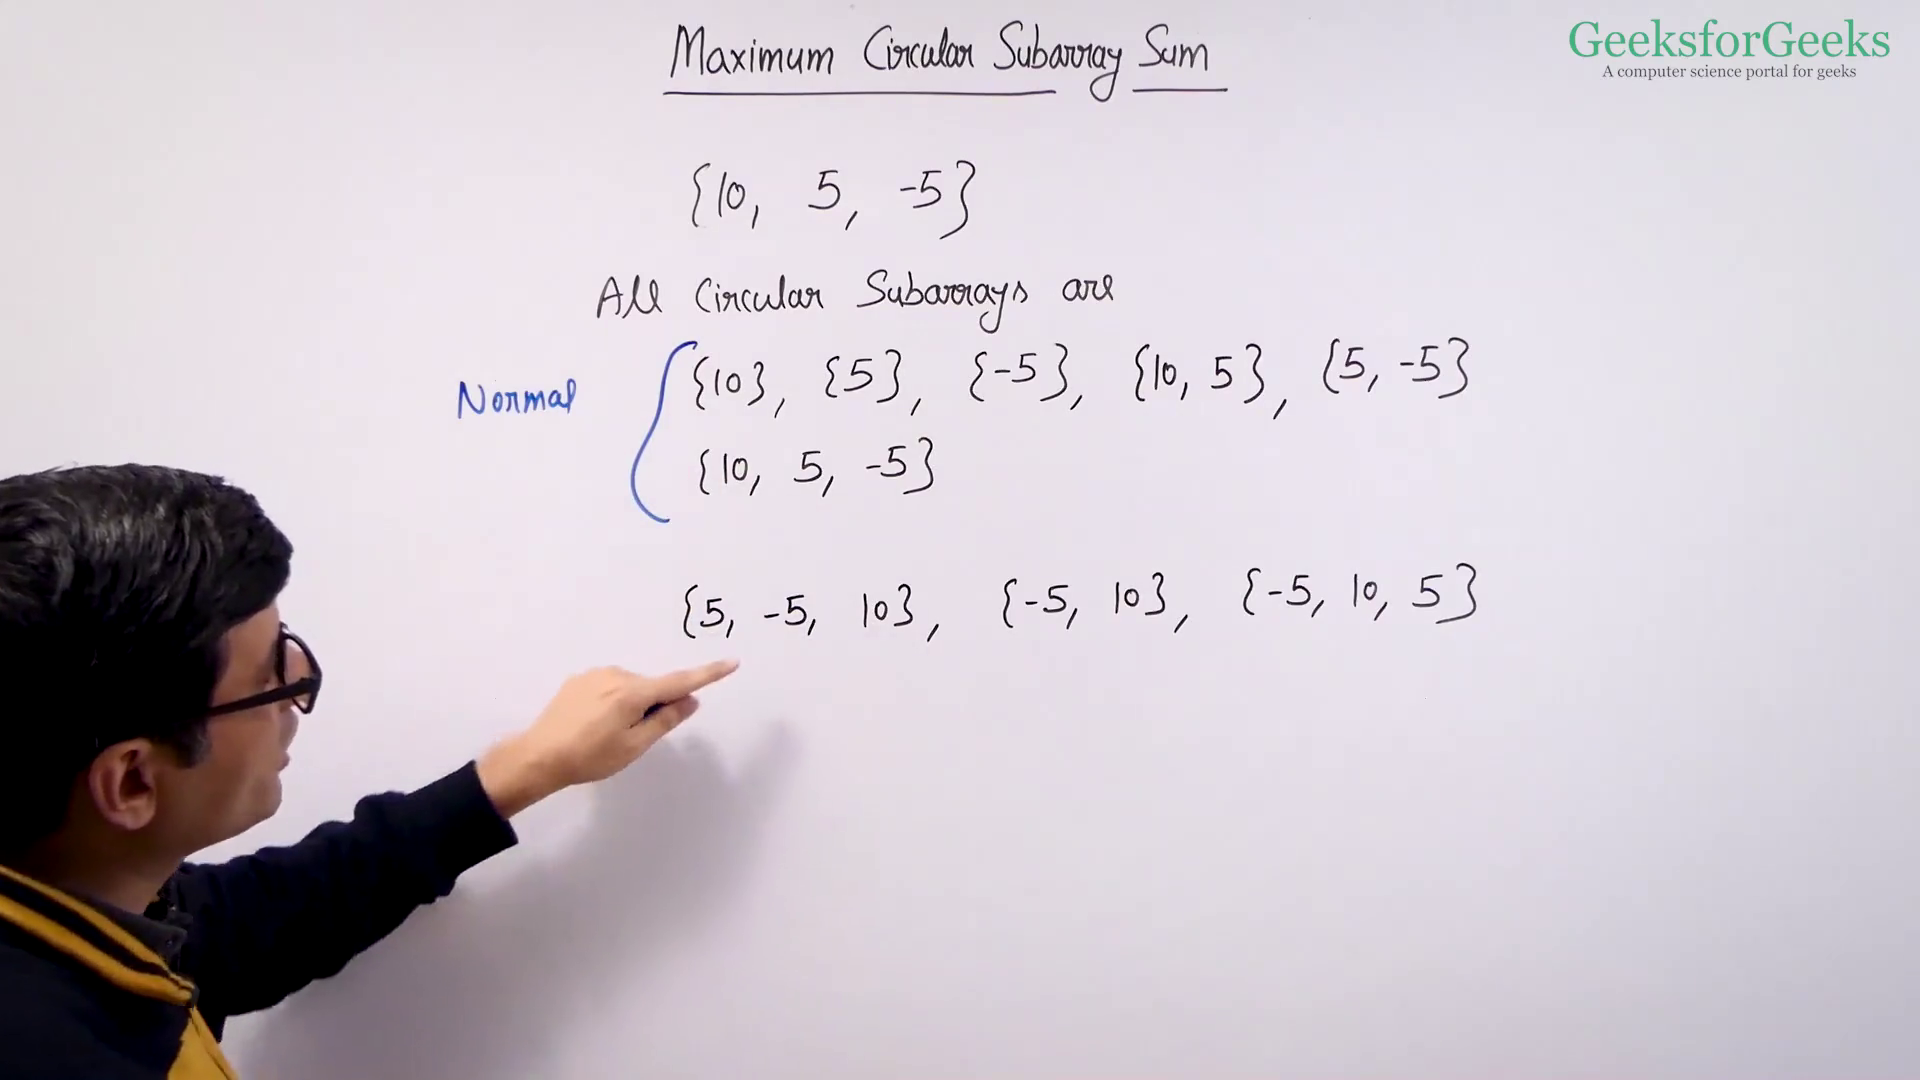 Maximum Circular Subarray Sum
GeeksforGeeks
A computer science portal for geeks
{10, 5, -5}
All Circular Subarrays are
Normal
{10}, {5}, {-5}, {10, 5}, {5, -5}
{10, 5, -5}
{5, -5, 10}, {-5, 10}, {-5, 10, 5}